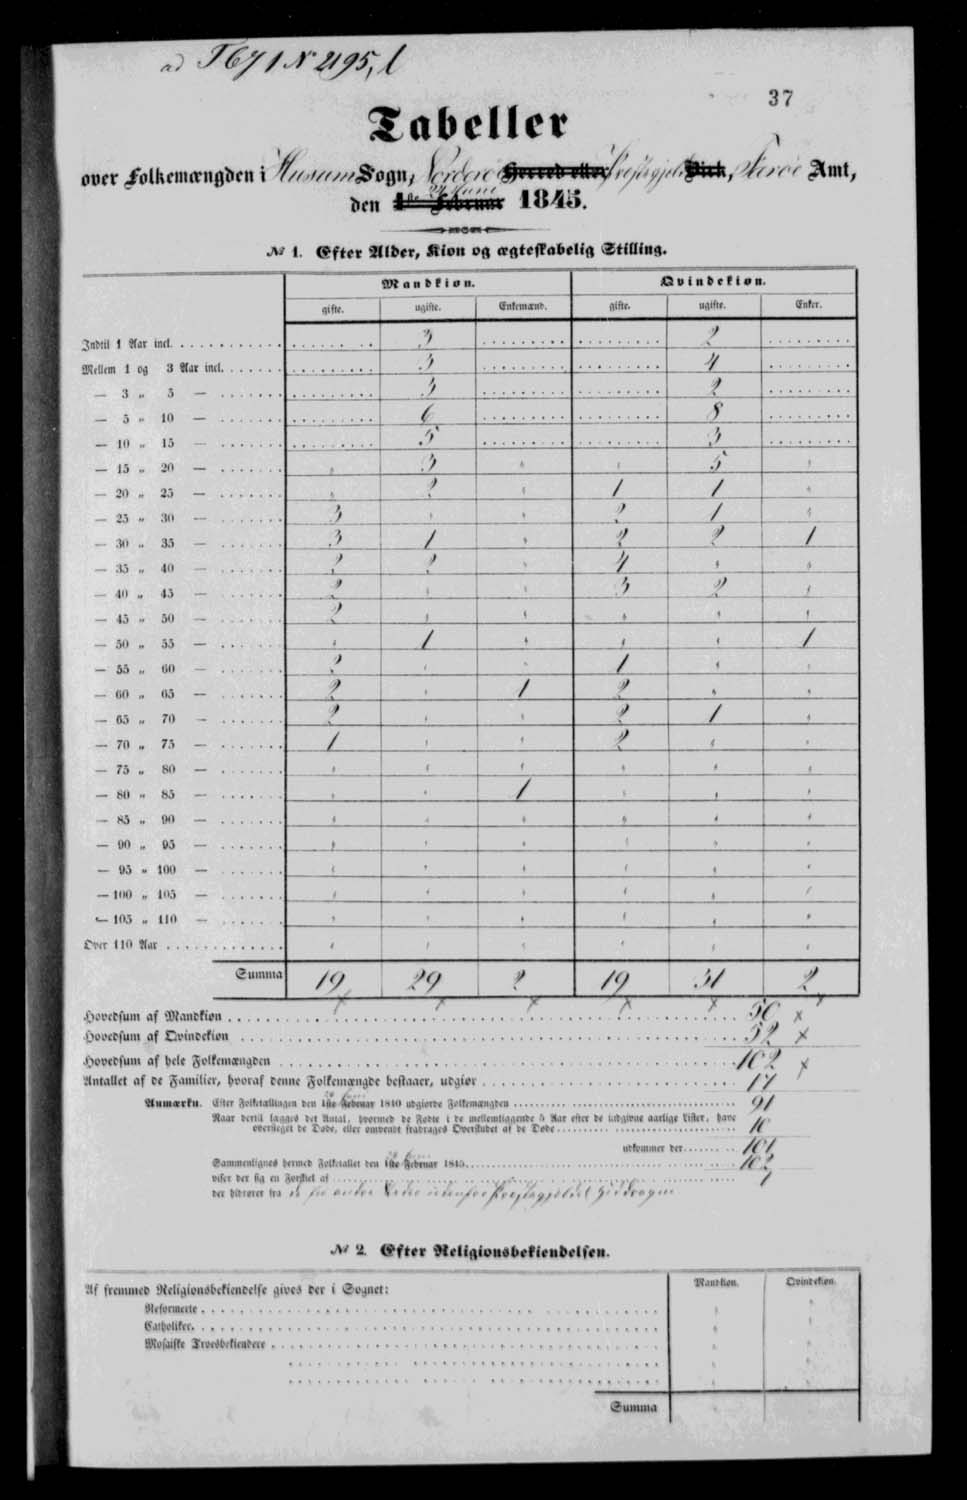 ad T 67 1 N 2195, l
37
Tabeller
over Folkemængden i Husum Sogn, Norderø Herred eller Præstegjeld Birk, Færøe Amt,
den 1ste Februar 24 Juni 1845.
№ 1. Efter Alder, Kion og ægteskabelig Stilling.
Mandkion. Qvindekion.
gifte. ugifte. Enkemænd. gifte. ugifte. Enker.
Indtil 1 Aar incl. 3 2
Mellem 1 og 3 Aar incl. 3 4
— 3 „ 5 — 3 2
— 5 „ 10 — 6 8
— 10 „ 15 — 5 3
— 15 „ 20 — „ 3 „ „ 5 „
— 20 „ 25 — „ 2 „ 1 1 „
— 25 „ 30 — 3 „ „ 2 1 „
— 30 „ 35 — 3 1 „ 2 2 1
— 35 „ 40 — 2 2 „ 4 „ „
— 40 „ 45 — 2 „ „ 3 2 „
— 45 „ 50 — 2 „ „ „ „ „
— 50 „ 55 — „ 1 „ „ „ 1
— 55 „ 60 — 2 „ „ 1 „ „
— 60 „ 65 — 2 „ 1 2 „ „
— 65 „ 70 — 2 „ „ 2 1 „
— 70 „ 75 — 1 „ „ 2 „ „
— 75 „ 80 — „ „ „ „ „ „
— 80 „ 85 — „ „ 1 „ „ „
— 85 „ 90 — „ „ „ „ „ „
— 90 „ 95 — „ „ „ „ „ „
— 95 „ 100 — „ „ „ „ „ „
— 100 „ 105 — „ „ „ „ „ „
— 105 „ 110 — „ „ „ „ „ „
Over 110 Aar „ „ „ „ „ „
Summa 19 29 2 19 31 2
Hovedsum af Mandkion 50
Hovedsum af Qvindekion 52
Hovedsum af hele Folkemængden 102
Antallet af de Familier, hvoraf denne Folkemængde bestaaer, udgiør 17
Anmærkn. Efter Folketællingen den 1ste Februar 1840 udgiorde Folkemængden 91
Naar dertil lægges det Antal, hvormed de Fødte i de mellemliggende 5 Aar efter de indgivne aarlige Lister, have
oversteget de Døde, eller omvendt fradrages Overskudet af de Døde 10
udkommer der 101
Sammenlignes hermed Folketallet den 1ste Februar 1845 102
viser der sig en Forskiel af 1
der hidrører fra de fra andre Steder udenfor Præstegjeldet
№ 2. Efter Religionsbekiendelsen.
Mandkion. Qvindekion.
Af fremmed Religionsbekiendelse gives der i Sognet:
Reformerte „ „
Catholiker „ „
Mosaiske Troesbekiendere „ „
„ „
„ „
Summa „ „